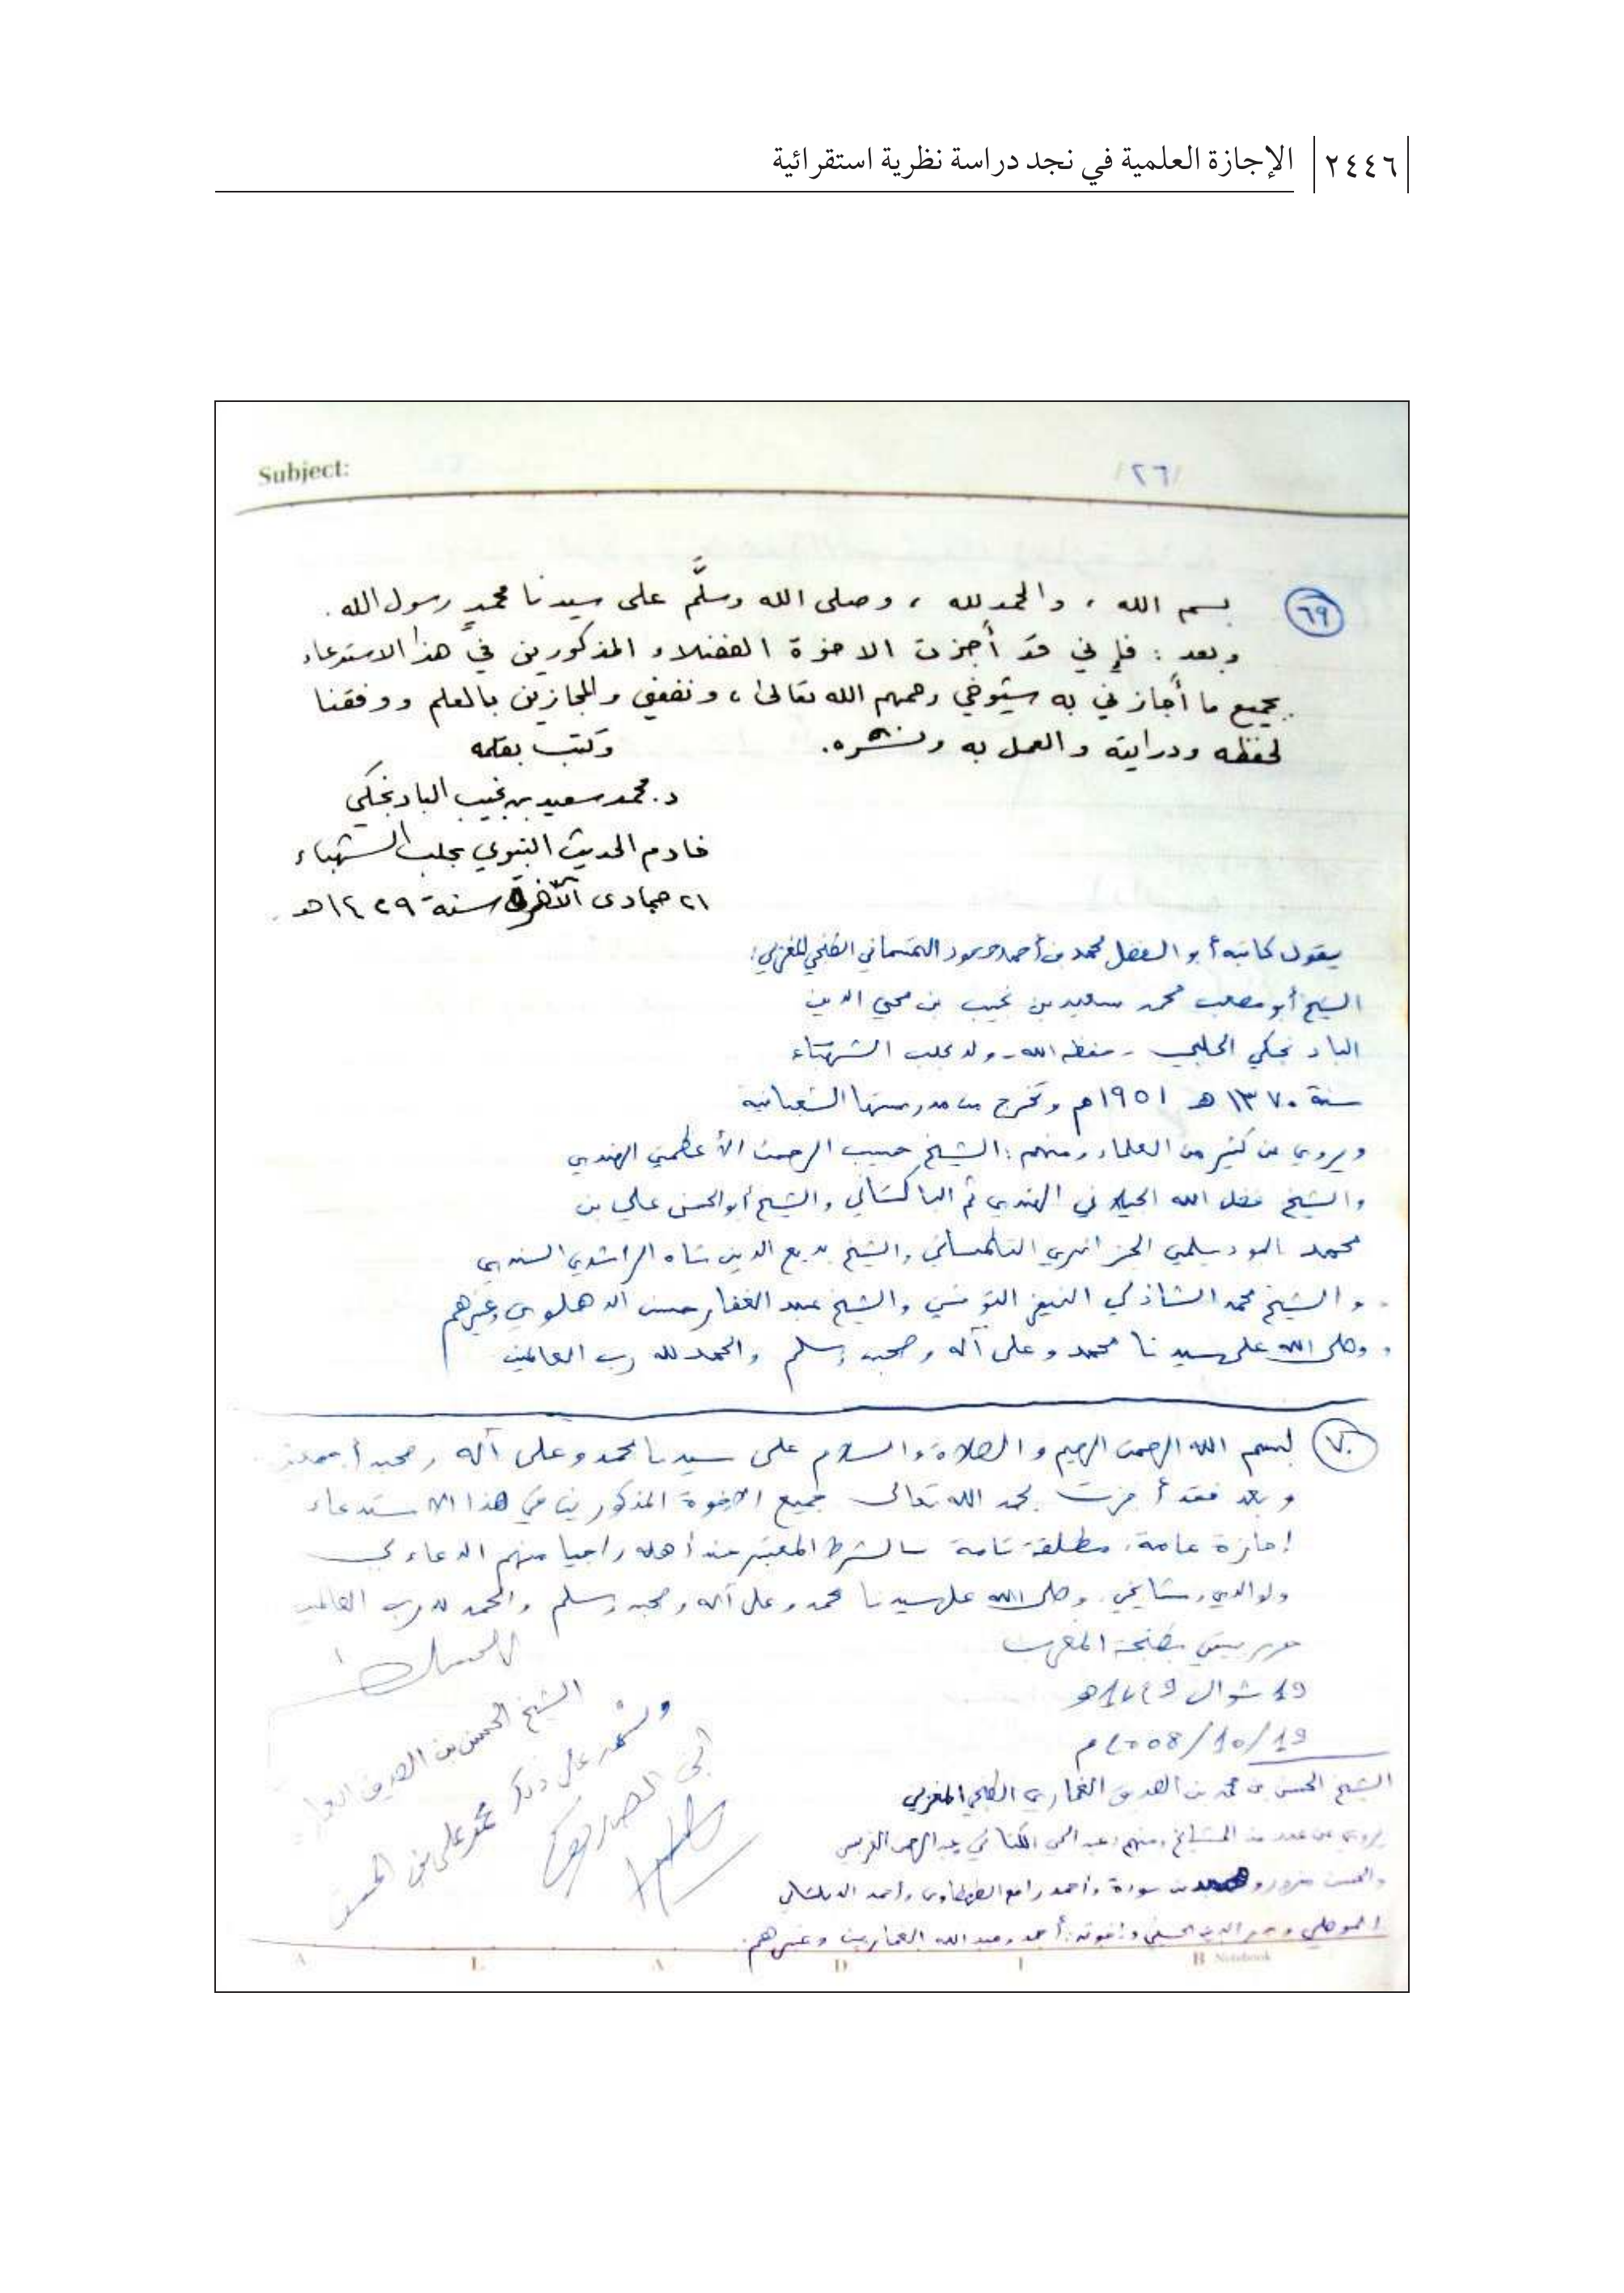 ٢٤٤٦ الإجازة العلمية في نجد دراسة نظرية استقرائية
Subject:
١٢٦١
٦٩ بسم الله ، والحمد لله ، وصلى الله وسلَّم على سيدنا محمدٍ رسول الله .
وبعد : فإني قد أجزت الاخوة الفضلاء المذكورين في هذا الاستدعاء
بجميع ما أجازني به شيوخي رحمهم الله تعالى ، ونفعني والمجازين بالعلم ووفقنا
لحفظه ودرايته والعمل به ونشره . وكتب بقلمه
د. محمد سعيد بن نجيب البادنجكي
خادم الحديث النبوي بحلب الشهباء
٢١ جمادى الآخرة سنة ١٤٢٩هـ
يقول كاتبه أبو الفضل محمد بن أحمد حمود التمسماني الطنجي المغربي :
الشيخ أبو مصعب محمد سعيد بن نجيب بن محيي الدين
البادنجكي الحلبي - حفظه الله - ولد بحلب الشهباء
سنة ١٣٧٠ هـ ١٩٥١م وتخرج من مدرستها الشعبانية
ويروي عن كثير من العلماء ومنهم : الشيخ حبيب الرحمن الأعظمي الهندي
والشيخ فضل الله الجيلاني الهندي ثم الباكستاني والشيخ أبو الحسن علي بن
محمد البوديلمي الجزائري التلمساني والشيخ بديع الدين شاه الراشدي السندي
والشيخ محمد الشاذلي النيفر التونسي والشيخ عبد الغفار حسن الدهلوي وغيرهم
وصلى الله على سيدنا محمد وعلى آله وصحبه وسلم والحمد لله رب العالمين
٧٠ بسم الله الرحمن الرحيم والصلاة والسلام على سيدنا محمد وعلى آله وصحبه أجمعين
وبعد فقد أجزت بحمد الله تعالى جميع الإخوة المذكورين في هذا الاستدعاء
إجازة عامة مطلقة تامة بالشرط المعتبر عند أهله راجيا منهم الدعاء لي
ولوالدي ومشايخي وصلى الله على سيدنا محمد وعلى آله وصحبه وسلم والحمد لله رب العالمين
حرر ببيتي بطنجة المغرب
19 شوال 1429هـ
19/10/2008م
الشيخ الحسن بن الصديق
وشهد على ذلك محمد علي بن
الشيخ الحسن بن محمد بن الصديق الغماري الطنجي المغربي
يروي عن عدد من المشايخ ومنهم : عبد الحي الكتاني وعبد الرحمن
والحسن مزور و بن سودة وأحمد رافع الطهطاوي وأحمد
الموصلي وبدر الدين الحسني وإخوته : أحمد وعبد الله الغماريين وغيرهم .
A L A D I B Notebook